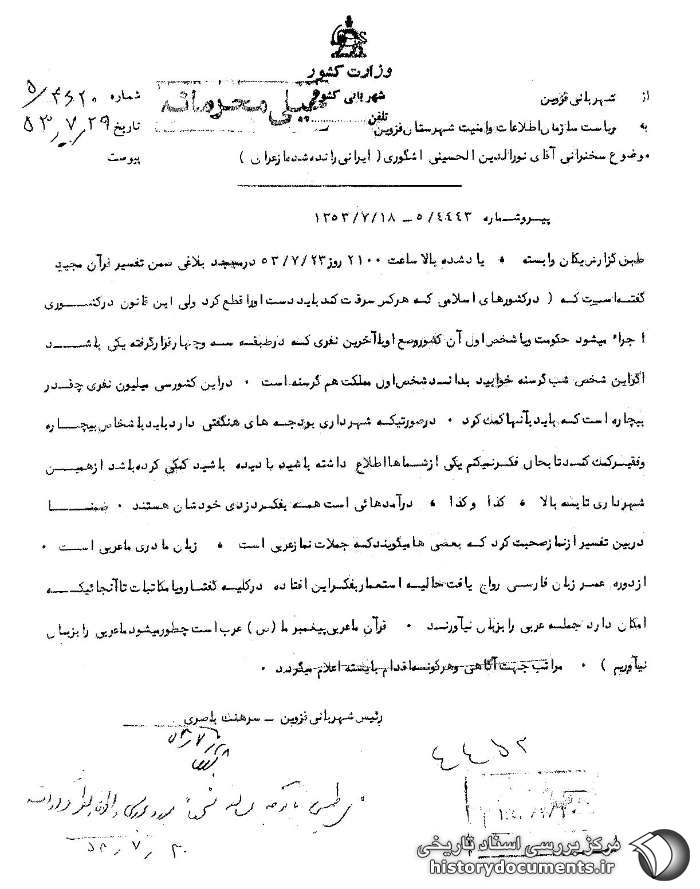 وزارت کشور
شهربانی کشور
خیلی محرمانه
تلفن
از شهربانی قزوین
شماره ۵/۴۶۲۰
به ریاست سازمان اطلاعات وامنیت شهرستان قزوین
تاریخ ۵۳٫۷٫۲۹
موضوع سخنرانی آقای نورالدین الحسینی اشکوری ( ایرانی رانده شده از عراق )
پیوست
پیروشماره ۵/۴۴۴۳ - ۱۳۵۳/۷/۱۸
طبق گزارش یکان وابسته ۰ یاد شده بالا ساعت ۲۱۰۰ روز ۵۳/۷/۲۳ درمسجد بلاغی ضمن تفسیر قرآن مجید
گفته است که ( درکشورهای اسلامی که هرکس سرقت کند باید دست اورا قطع کرد ولی این قانون درکشوری
اجراء میشود حکومت ویا شخص اول آن کشور وضع اوبا آخرین نفری که درطبقه سه وچهار قرار گرفته یکی باشد
اگر این شخص شب گرسنه خوابید بداند شخص اول مملکت هم گرسنه است ۰ دراین کشور سی میلیون نفری چقدر
بیچاره است که باید بآنها کمک کرد ۰ درصورتیکه شهرداری بودجه های هنگفتی دارد باید باشخاص بیچاره
وفقیر کمک کند تا بحال فکر نمیکنم یکی از شماها اطلاع داشته باشید یا دیده باشید کمکی کرده باشد از همین
شهرداری تا به بالا ۰ کذا وکذا ۰ درآمدهائی است همه بفکر دزدی خودشان هستند ۰ ضمنا
دربین تفسیر از نماز صحبت کرد که بعضی ها میگویند که جملات نماز عربی است ۰ زبان مادری ما عربی است ۰
ازدوره عمر زبان فارسی رواج یافت حالیه استعمار بفکر این افتاده درکلیه گفتار ویا مکاتبات تا آنجائیکه
امکان دارد جمله عربی را بزبان نیآورند ۰ قرآن ما عربی پیغمبر ما (ص) عرب است چطور میشود ما عربی را بزبان
نیآوریم ) ۰ مراتب جهت آگاهی وهرگونه اقدام بایسته اعلام میگردد ۰
رئیس شهربانی قزوین - سرهنگ یاصری
۴۴۵۲
مرکز بررسی اسناد تاریخی
historydocuments.ir